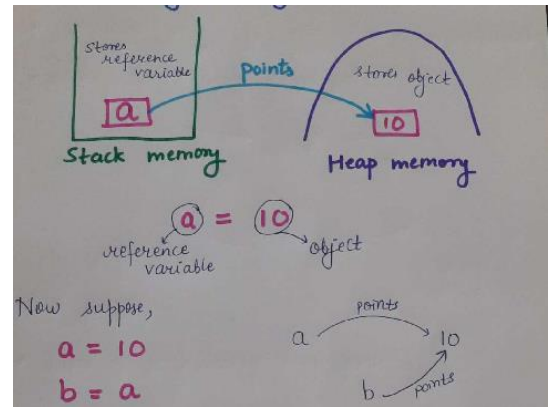 stores
reference
variable
a
points
stores object
10
Stack memory
Heap memory
a = 10
reference
variable
object
Now suppose,
a = 10
b = a
a
points
10
b
points